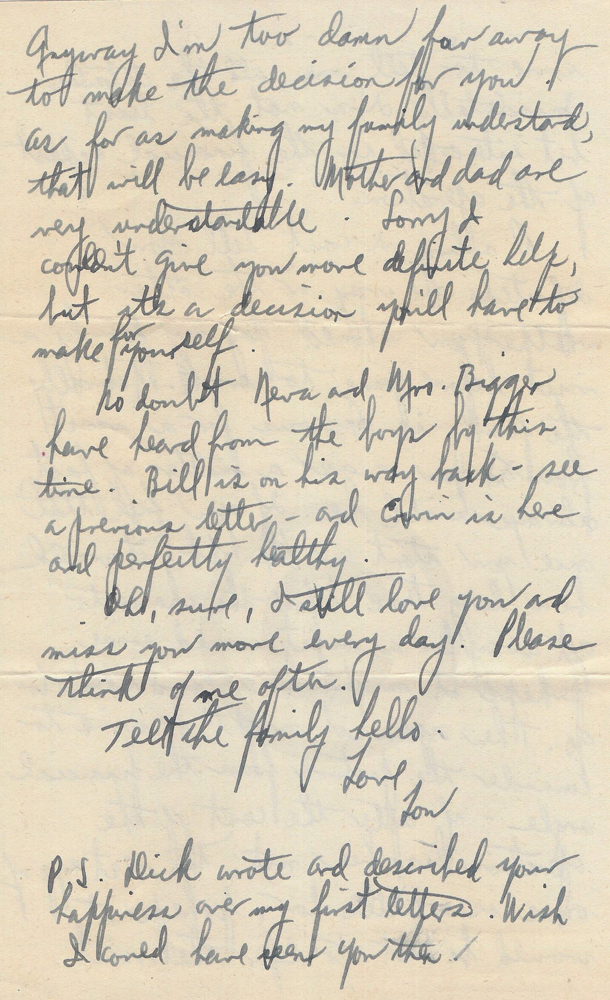 Anyway I'm too damn far away
to make the decision for you.
as for as making my family understand,
that will be easy. Mother and dad are
very understandable. Sorry I
couldn't give you more definite help,
but it's a decision you'll have to
make for yourself.
No doubt Neva and Mrs. Bigger
have heard from the boys by this
time. Bill is on his way back - see
a previous letter - and Ervin is here
and perfectly healthy.
Oh, sure, I still love you and
miss you more every day. Please
think of me often.
Tell the family hello.
Love
Lou
P.S. Dick wrote and described your
happiness over my first letters. Wish
I could have seen you then!